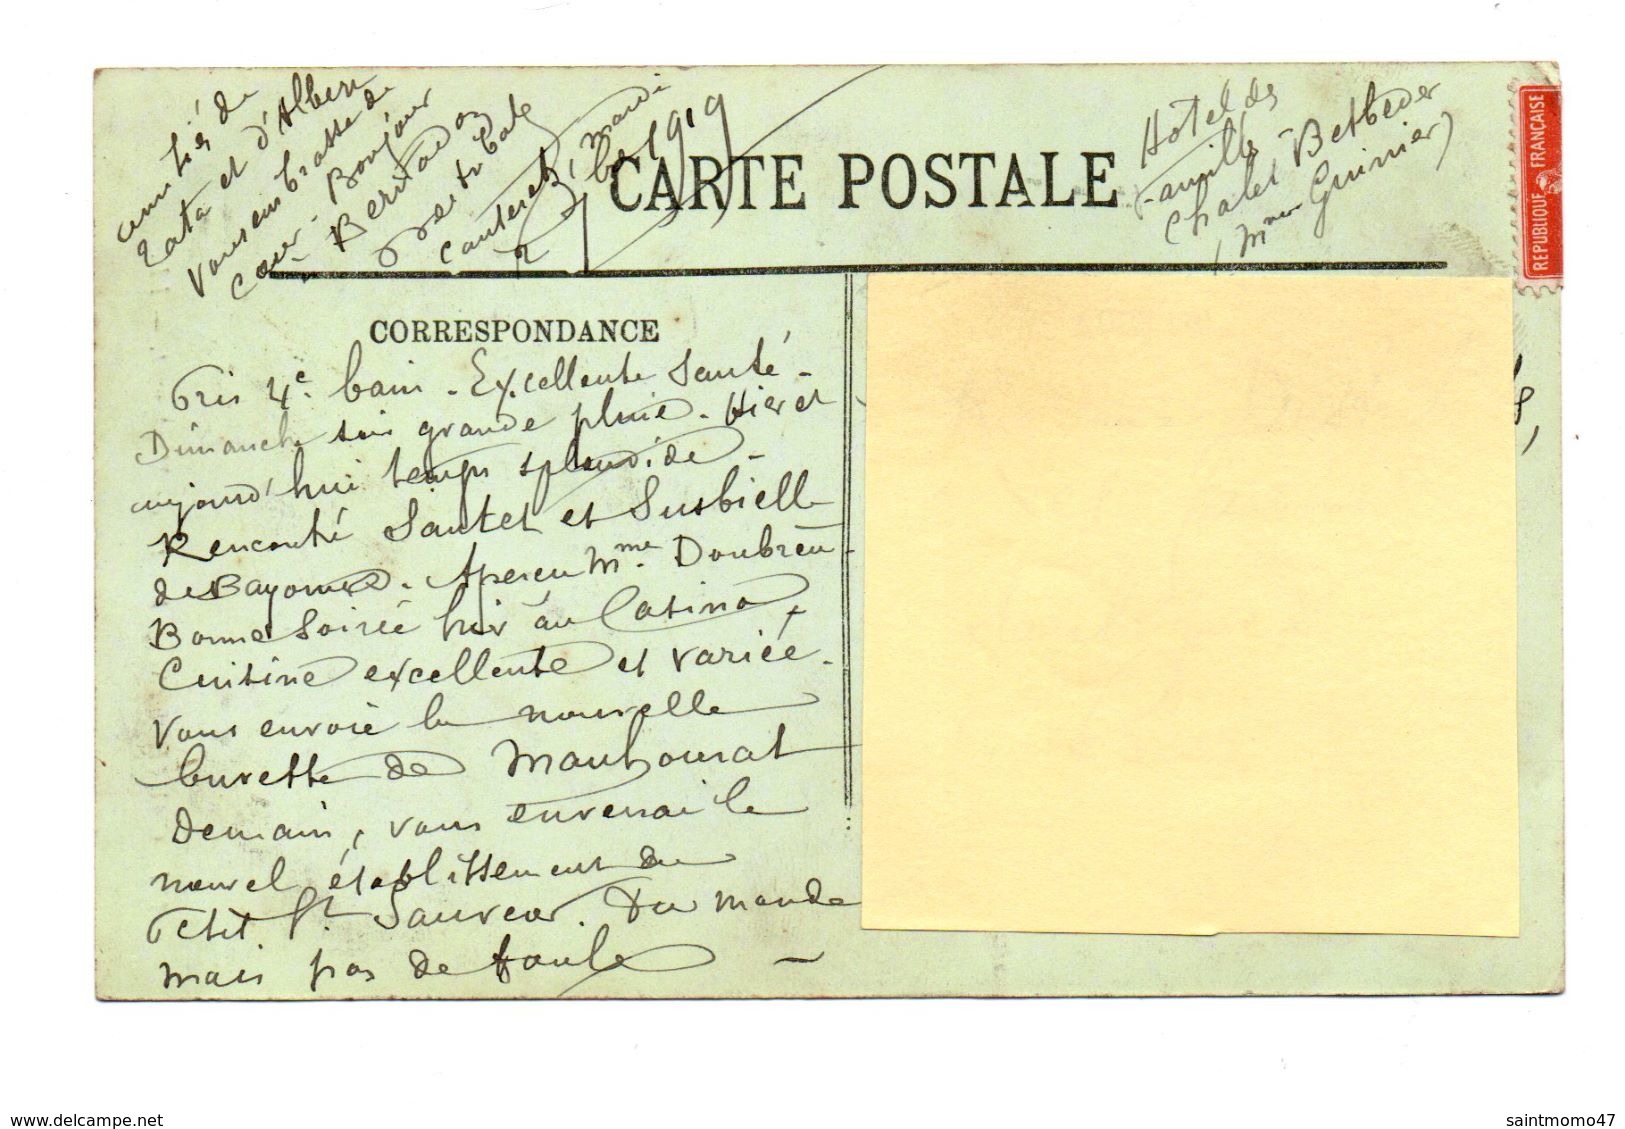 CARTE POSTALE
CORRESPONDANCE
REPUBLIQUE FRANÇAISE
Hotel des
Famille
Chalet Betbeder
(Mme Guinier)
Pris 4e bain - Excellente Santé -
Dimanche soir grande pluie. Hier et
aujourd'hui temps splendide -
Rencontré Sautet et Susbielle
de Bayonne. Aperçu Mme
Bonne Soirée hier au Casino,
Cuisine excellente et variée.
Vous envoie la nouvelle
buvette de Mauhourat
Demain, vous enverrai le
nouvel établissement du
Petit St Sauveur. Du monde
mais pas de foule -
amitiés de
Tata et d'Albert
Vous embrasse de
Cœur - Bonjour
à
Cauterets, Mardi
1919
delcampe.net
saintmomo47